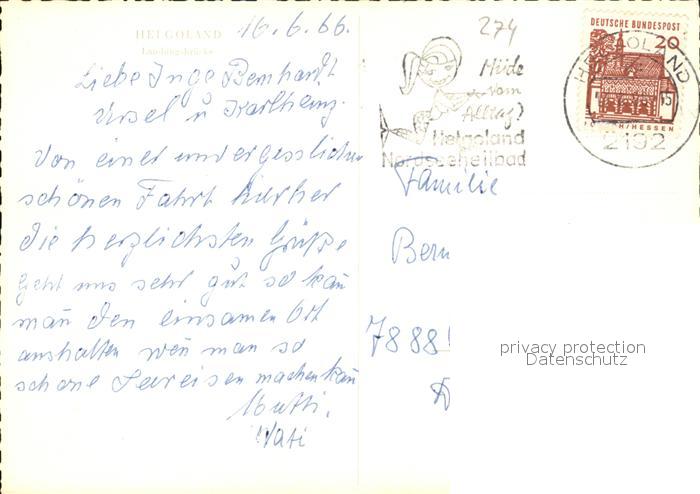 HELGOLAND
Landungsbrücke
16.6.66.
Liebe Inge Bernhardt
Ursel u Karlheinz.
Von einer unvergesslichen
schönen Fahrt hierher
die herzlichsten Grüße
Geht uns sehr gut so kan
man den einsamen Ort
aushalten wen man so
schöne Seereisen machen kan
Mutti,
Vati
274
Müde
vom
Alltag?
Helgoland
Nordseeheilbad
DEUTSCHE BUNDESPOST
20
LORSCH/HESSEN
HELGOLAND
2192
Familie
Bern
7888
privacy protection
Datenschutz